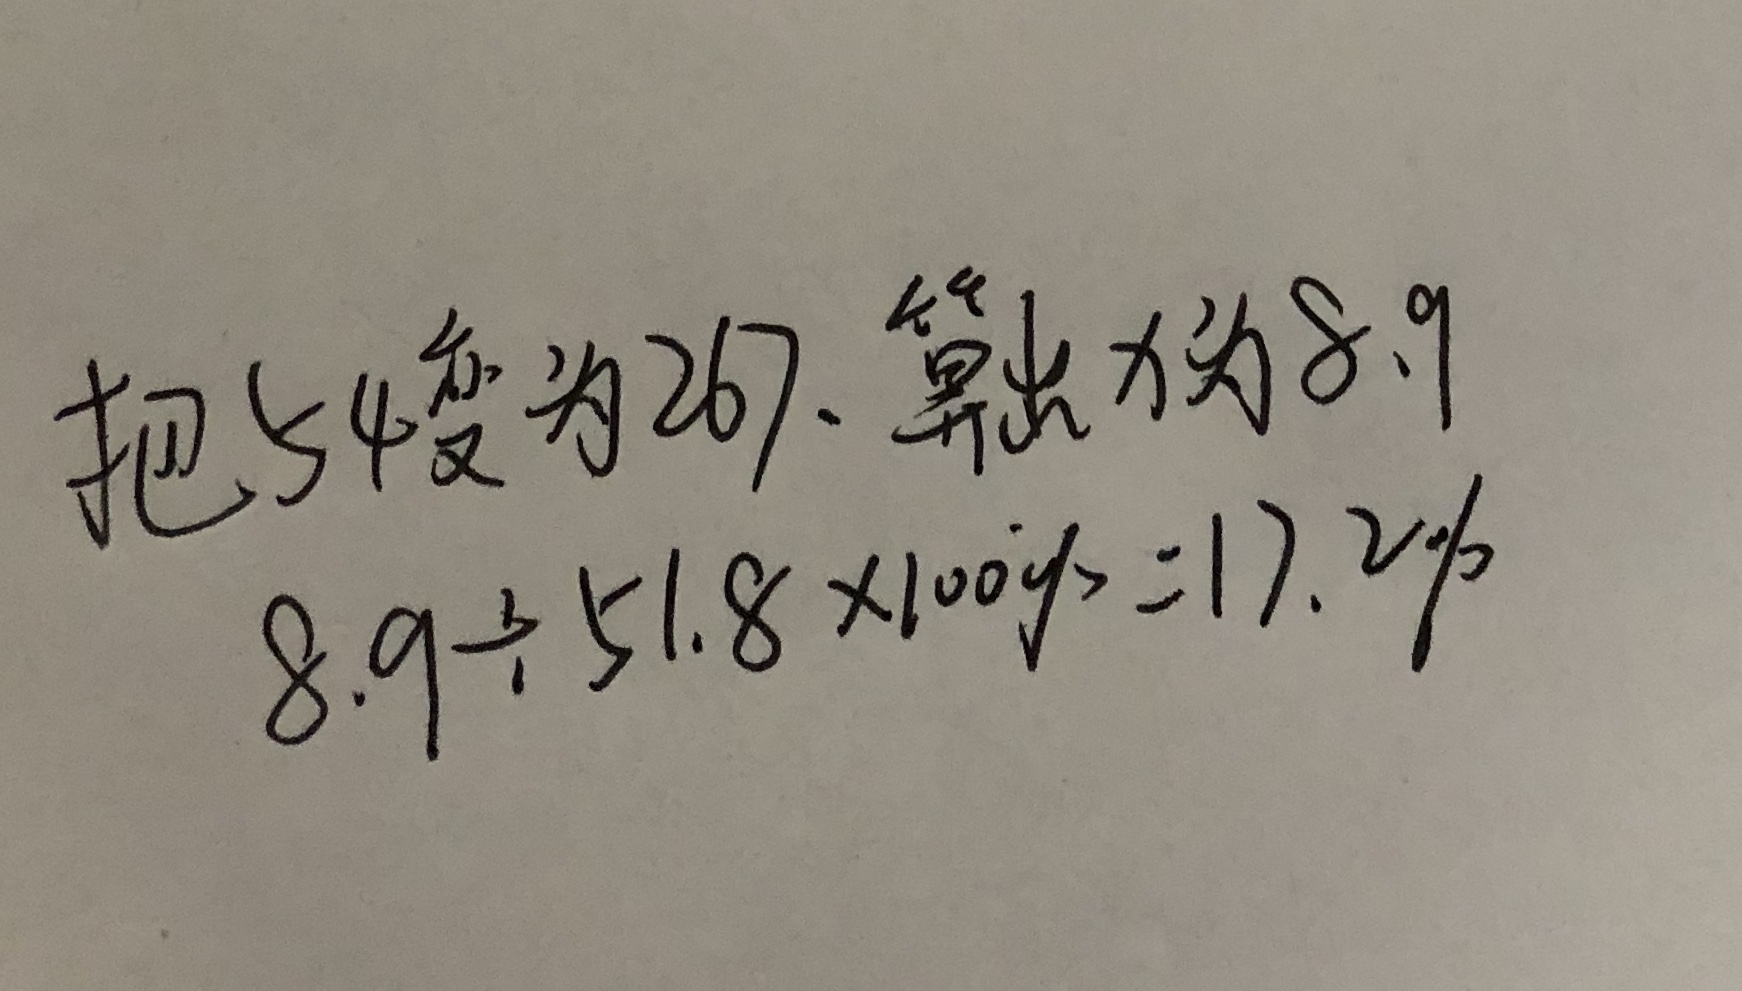 把54变为267、算出x为8.9
8.9÷51.8×100%=17.2%